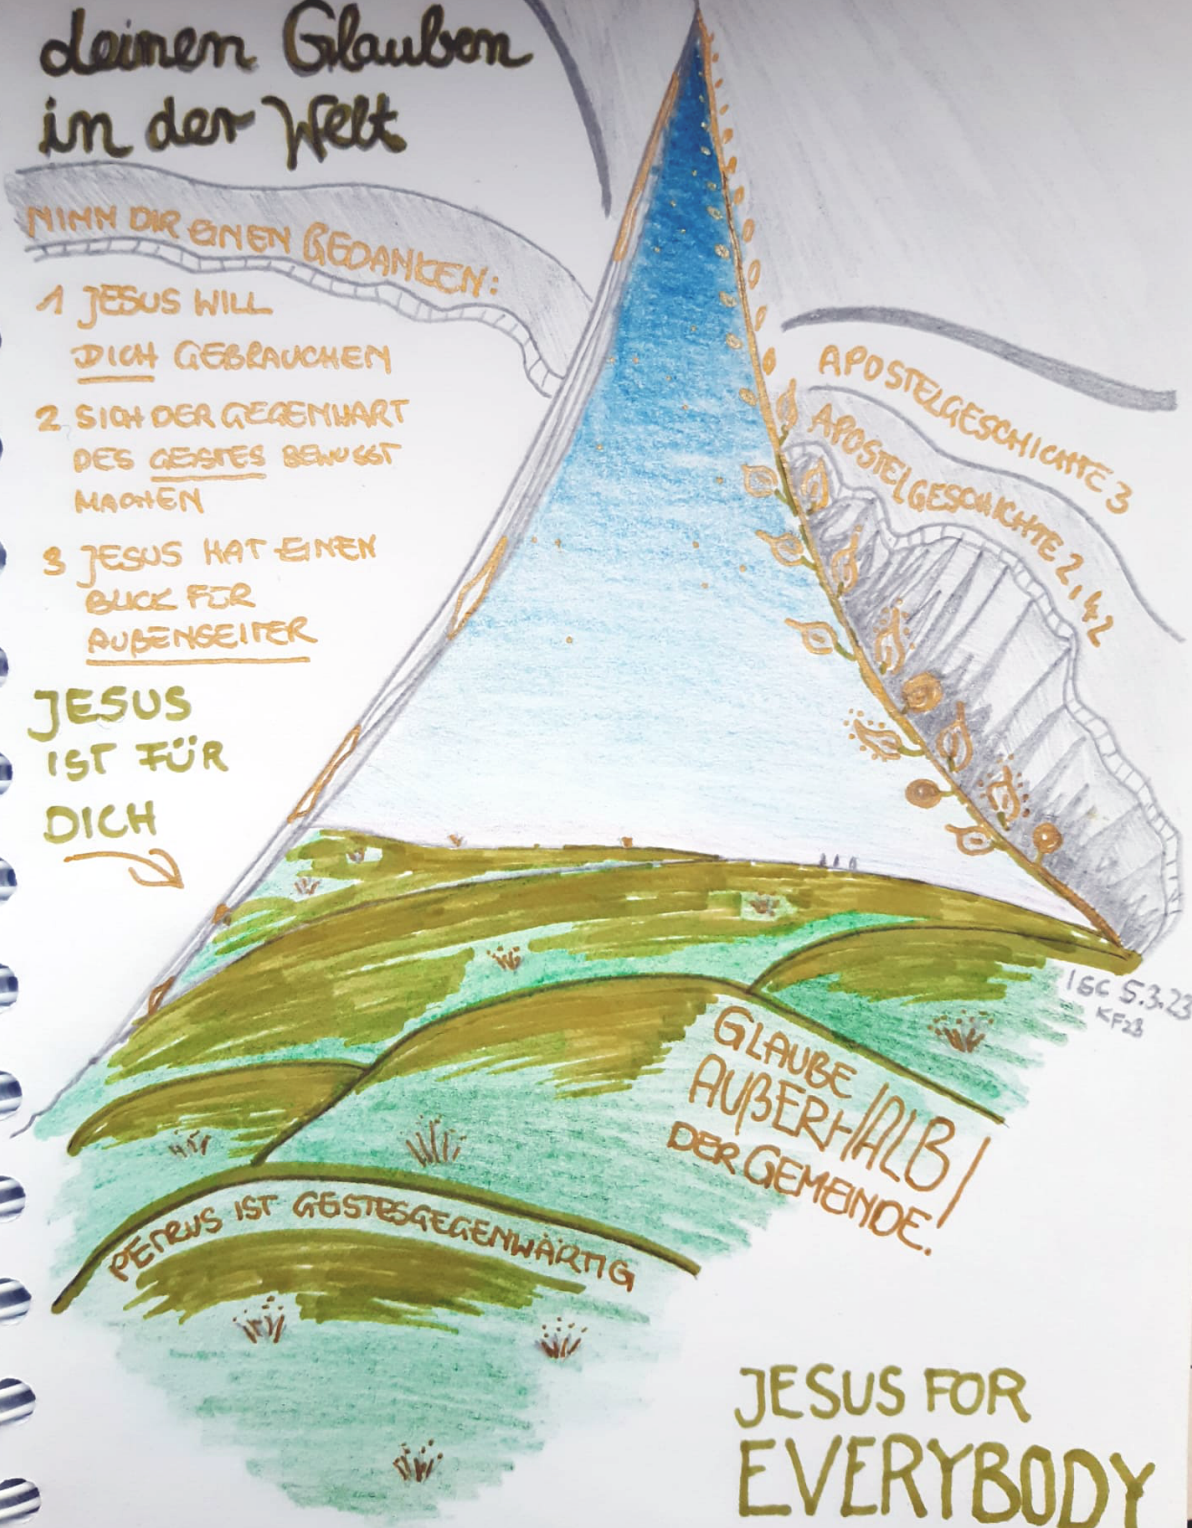 deinen Glauben
in der Welt
NIMM DIR EINEN GEDANKEN:
1 JESUS WILL
DICH GEBRAUCHEN
2. SICH DER GEGENWART
DES GEISTES BEWUSST
MACHEN
3 JESUS HAT EINEN
BLICK FÜR
AUßENSEITER
JESUS
IST FÜR
DICH
APOSTELGESCHICHTE 3
APOSTELGESCHICHTE 2, 42
ISC 5.3.23
KF23
GLAUBE
AUßERHALB
DER GEMEINDE.
PETRUS IST GEISTESGEGENWÄRTIG
JESUS FOR
EVERYBODY